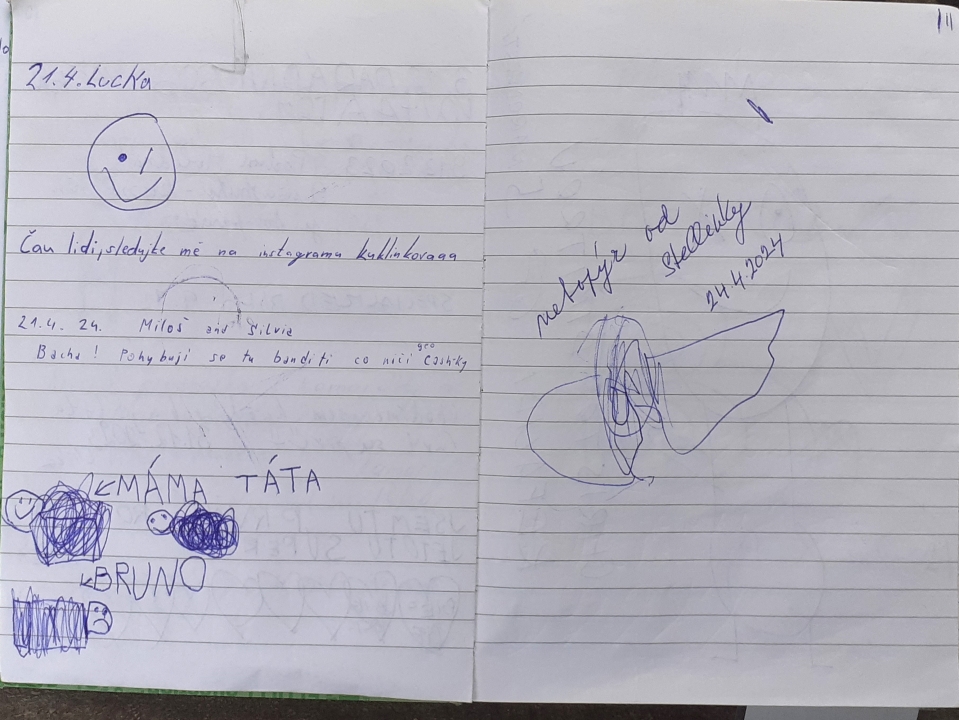 21.4. Lucka
Čau lidi, sledujte mě na instagramu kuklinkovaaa
21.4. 24. Miloš and Silvie
Bacha! Pohybují se tu banditi co ničí geo cashky
MÁMA TÁTA
BRUNO
netopýr od
Stellinky
24.4.2024